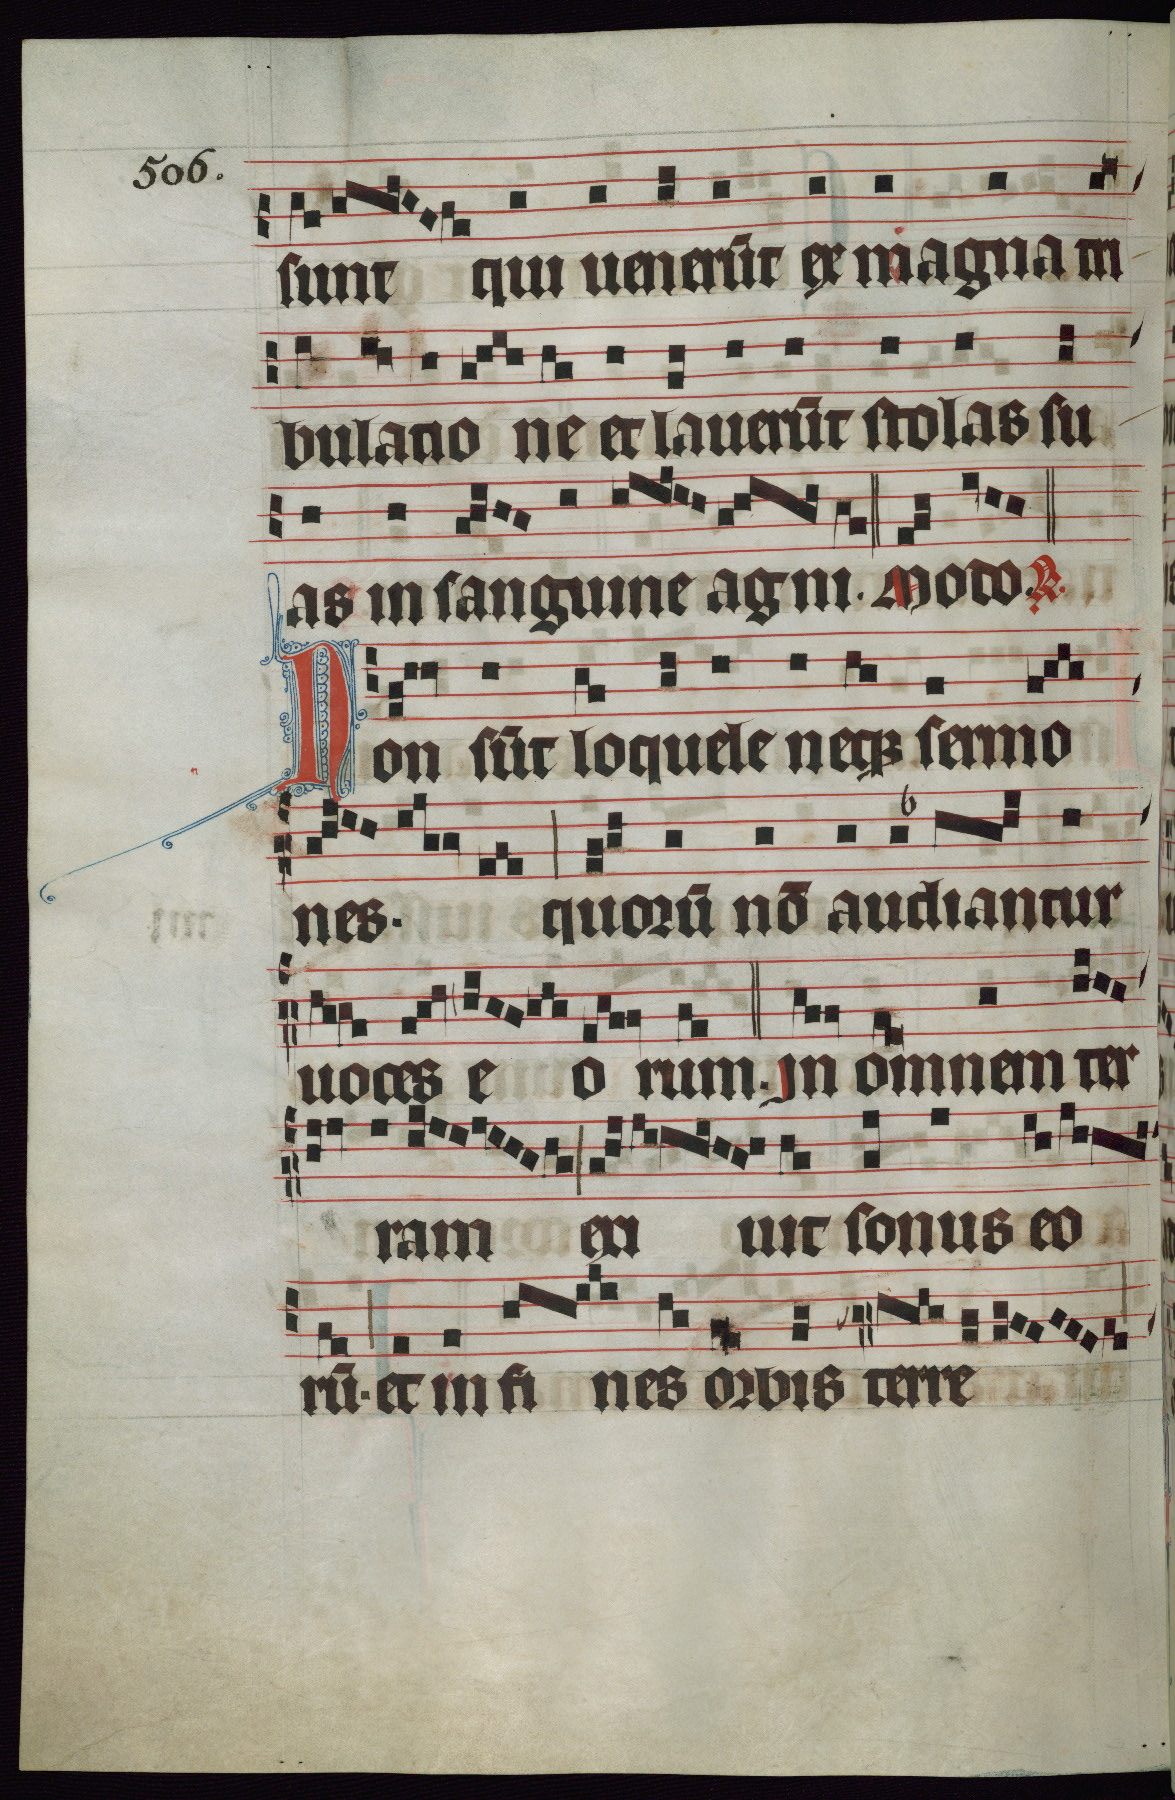 506.
sunt qui uenerūt ex magna tri
bulatio ne et lauerūt stolas su
as in sanguine agni. Modo. R.
Non sūt loquele neqꝫ sermo
nes. quorū nō audiantur
uoces e o rum. In omnem ter
ram exi uit sonus eo
rū. et in fi nes orbis terre